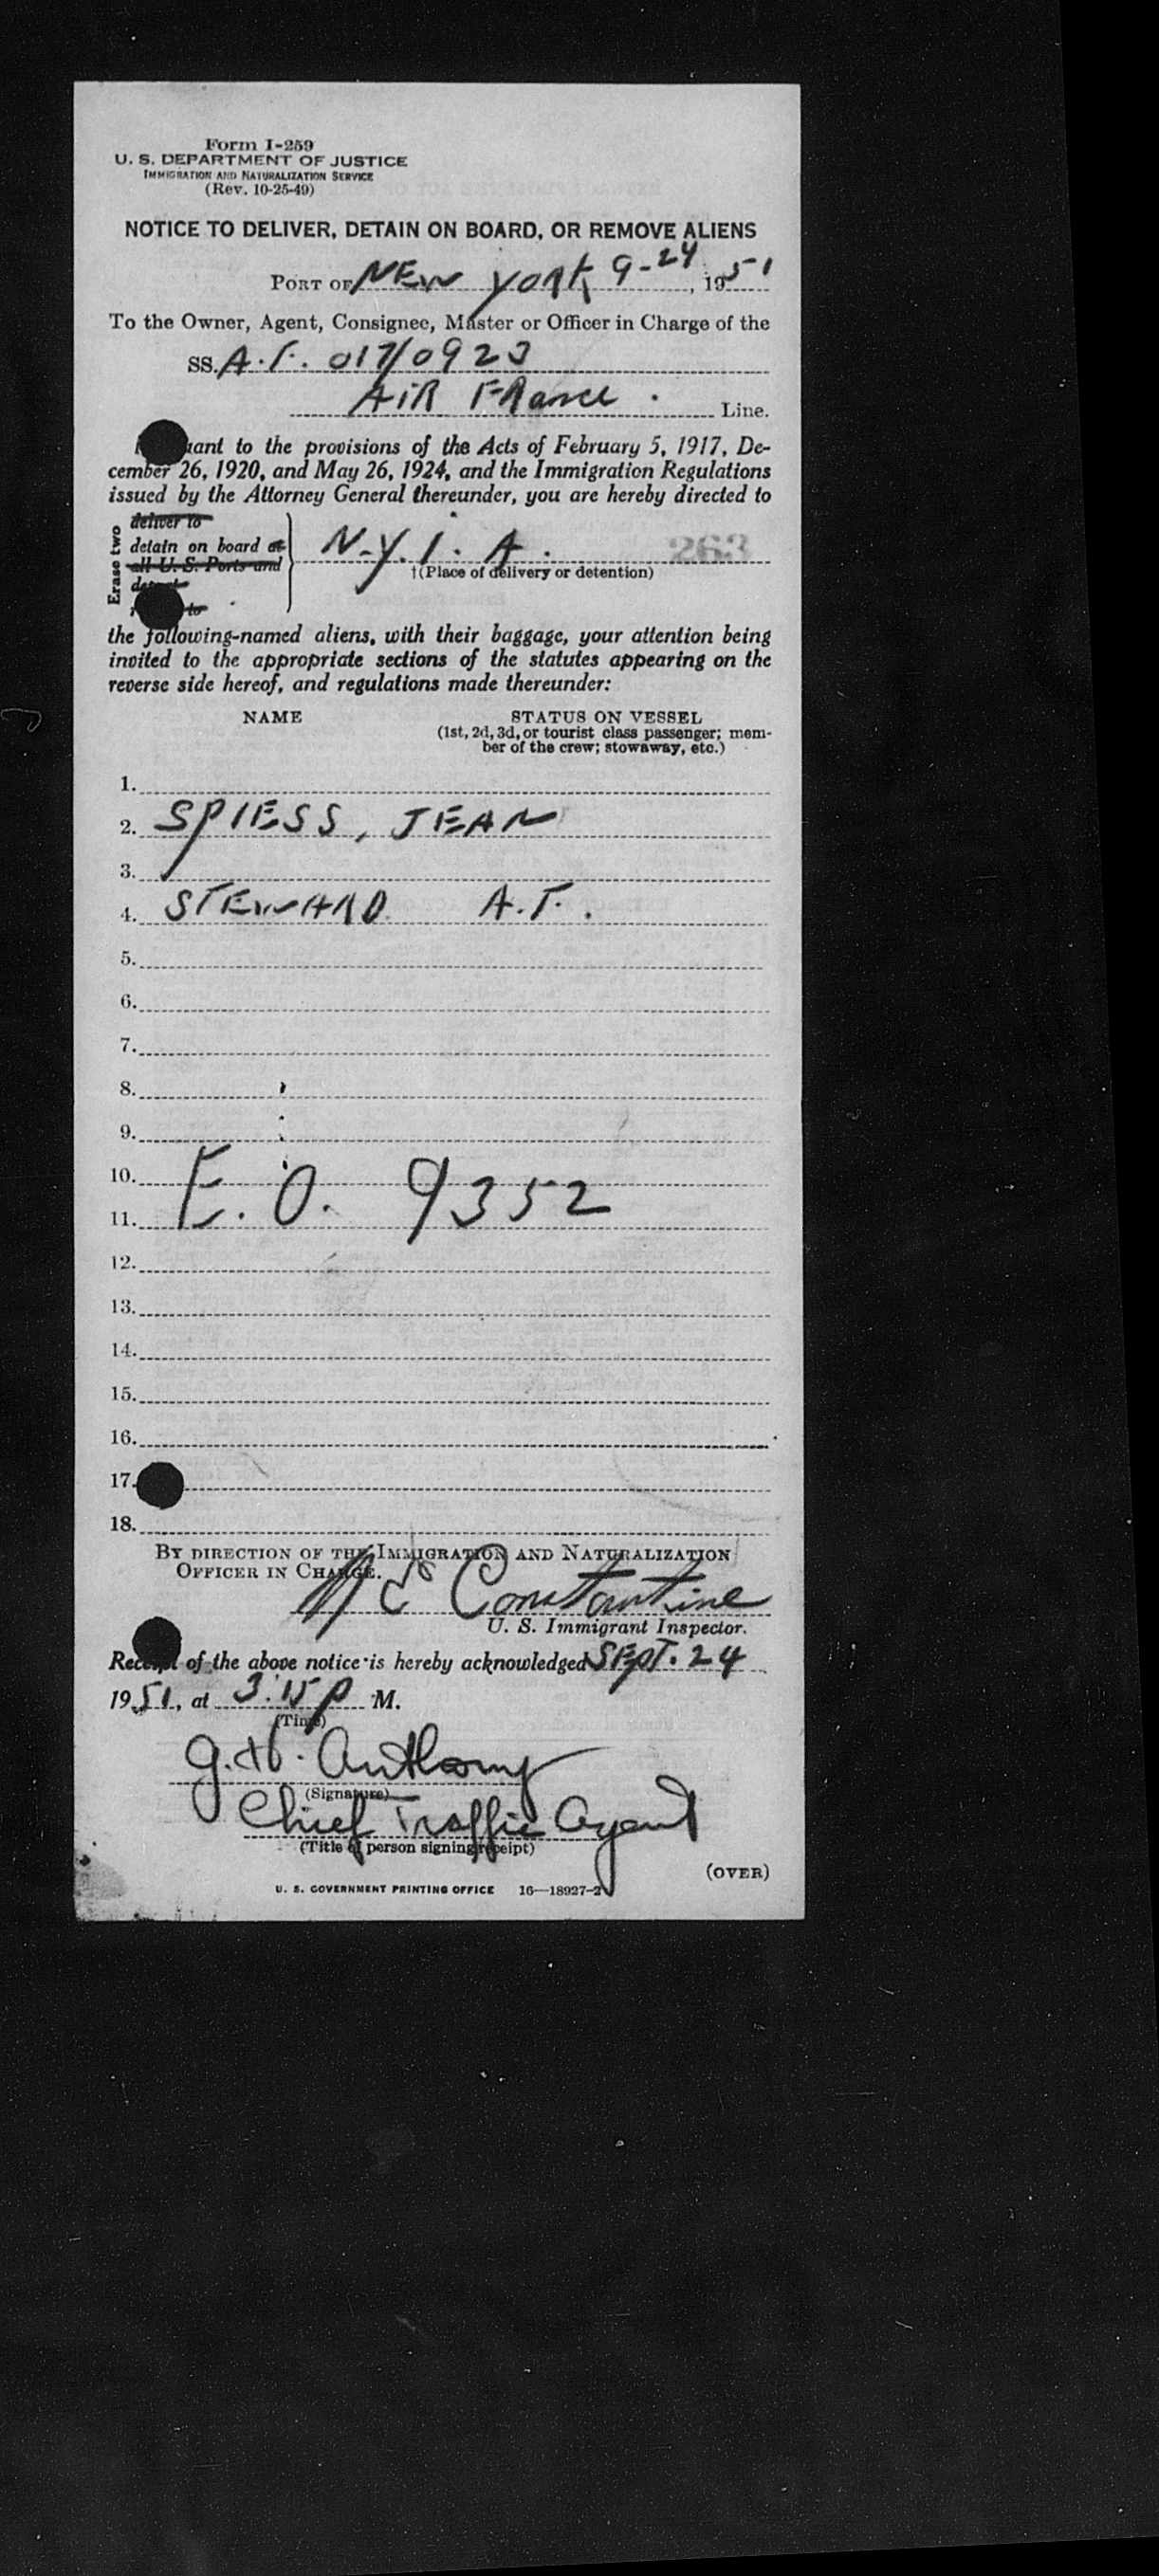 Form I-259
U. S. DEPARTMENT OF JUSTICE
IMMIGRATION AND NATURALIZATION SERVICE
(Rev. 10-25-49)
NOTICE TO DELIVER, DETAIN ON BOARD, OR REMOVE ALIENS
PORT OF NEW YORK 9-24, 1951
To the Owner, Agent, Consignee, Master or Officer in Charge of the
SS. A.F. 017/0923
AIR FRANCE. Line.
to the provisions of the Acts of February 5, 1917, De-
cember 26, 1920, and May 26, 1924, and the Immigration Regulations
issued by the Attorney General thereunder, you are hereby directed to
Erase two
deliver to
detain on board at
all U. S. Ports and
N.Y.I.A. 263
†(Place of delivery or detention)
to
the following-named aliens, with their baggage, your attention being
invited to the appropriate sections of the statutes appearing on the
reverse side hereof, and regulations made thereunder:
NAME STATUS ON VESSEL
(1st, 2d, 3d, or tourist class passenger; mem-
ber of the crew; stowaway, etc.)
1.
2. SPIESS, JEAN
3.
4. STEWARD A.F.
5.
6.
7.
8.
9.
10. E.O. 9352
11.
12.
13.
14.
15.
16.
17.
18.
BY DIRECTION OF THE IMMIGRATION AND NATURALIZATION
OFFICER IN CHARGE.
Constantine
U. S. Immigrant Inspector.
Receipt of the above notice is hereby acknowledged SEPT. 24
1951, at 3:15 P M.
(Time)
G.W. Anthony
(Signature)
Chief Traffic Agent
(Title of person signing receipt)
(OVER)
U. S. GOVERNMENT PRINTING OFFICE 16—18927-2